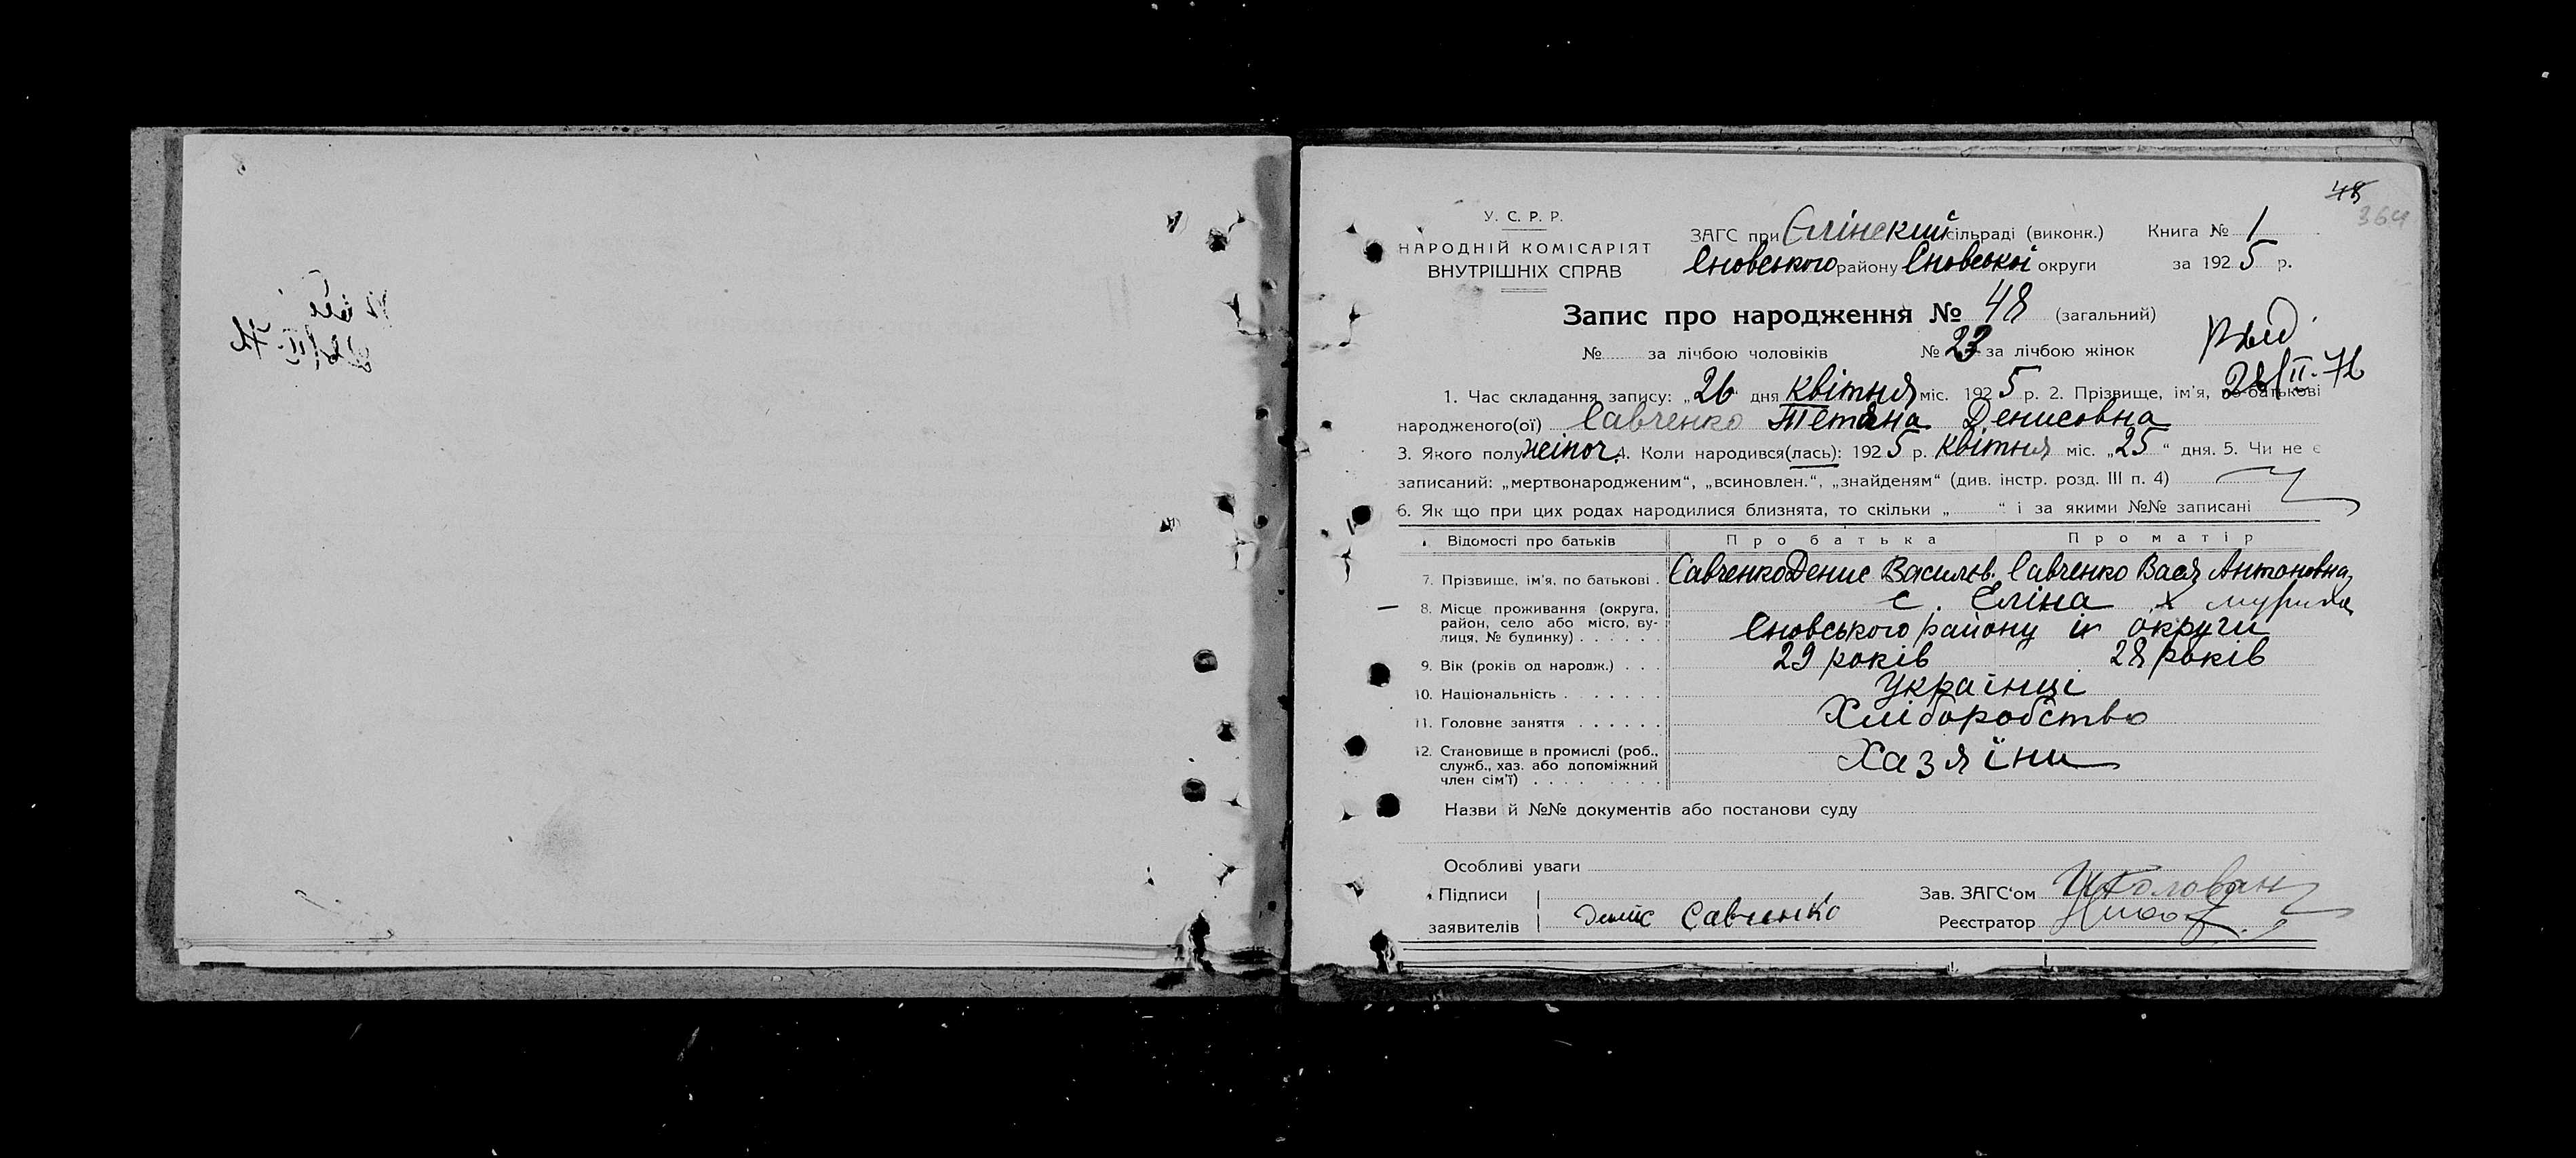 48
364
У. С. Р. Р.
НАРОДНІЙ КОМІСАРІЯТ
ВНУТРІШНІХ СПРАВ
ЗАГС при Єлінскій сільраді (виконк.) Книга № 1
Сновського району Сновської округи за 1925 р.
Запис про народження № 48 (загальний)
№ за лічбою чоловіків № 23 за лічбою жінок
28/II-76
1. Час складання запису: „26“ дня квітня міс. 1925 р. 2. Прізвище, ім'я, по-батькові
народженого(ої) Савченко Тетяна Денисовна
3. Якого полу жіноч. 4. Коли народився(лась): 1925 р. квітня міс. „25“ дня. 5. Чи не є
записаний: „мертвонародженим“, „всиновлен.“, „знайденям“ (див. інстр. розд. III п. 4)
6. Як що при цих родах народилися близнята, то скільки „ “ і за якими №№ записані
Відомості про батьків Про батька Про матір
7. Прізвище, ім'я, по батькові . Савченко Денис Васильєв. Савченко Вася Антоновна
8. Місце проживання (округа, район, село або місто, вулиця, № будинку) . . . . . . с. Єліна х
Сновського району ік округи
9. Вік (років од народж.) . . . 29 років 28 років
10. Національність . . . . . . . Українці
11. Головне заняття . . . . . . Хліборобство
12. Становище в промислі (роб., служб., хаз. або допоміжний член сім'ї) . . . . . . . . . Хазяїни
Назви й №№ документів або постанови суду
Особливі уваги
Підписи
заявителів Денис Савченко
Зав. ЗАГС'ом
Реєстратор